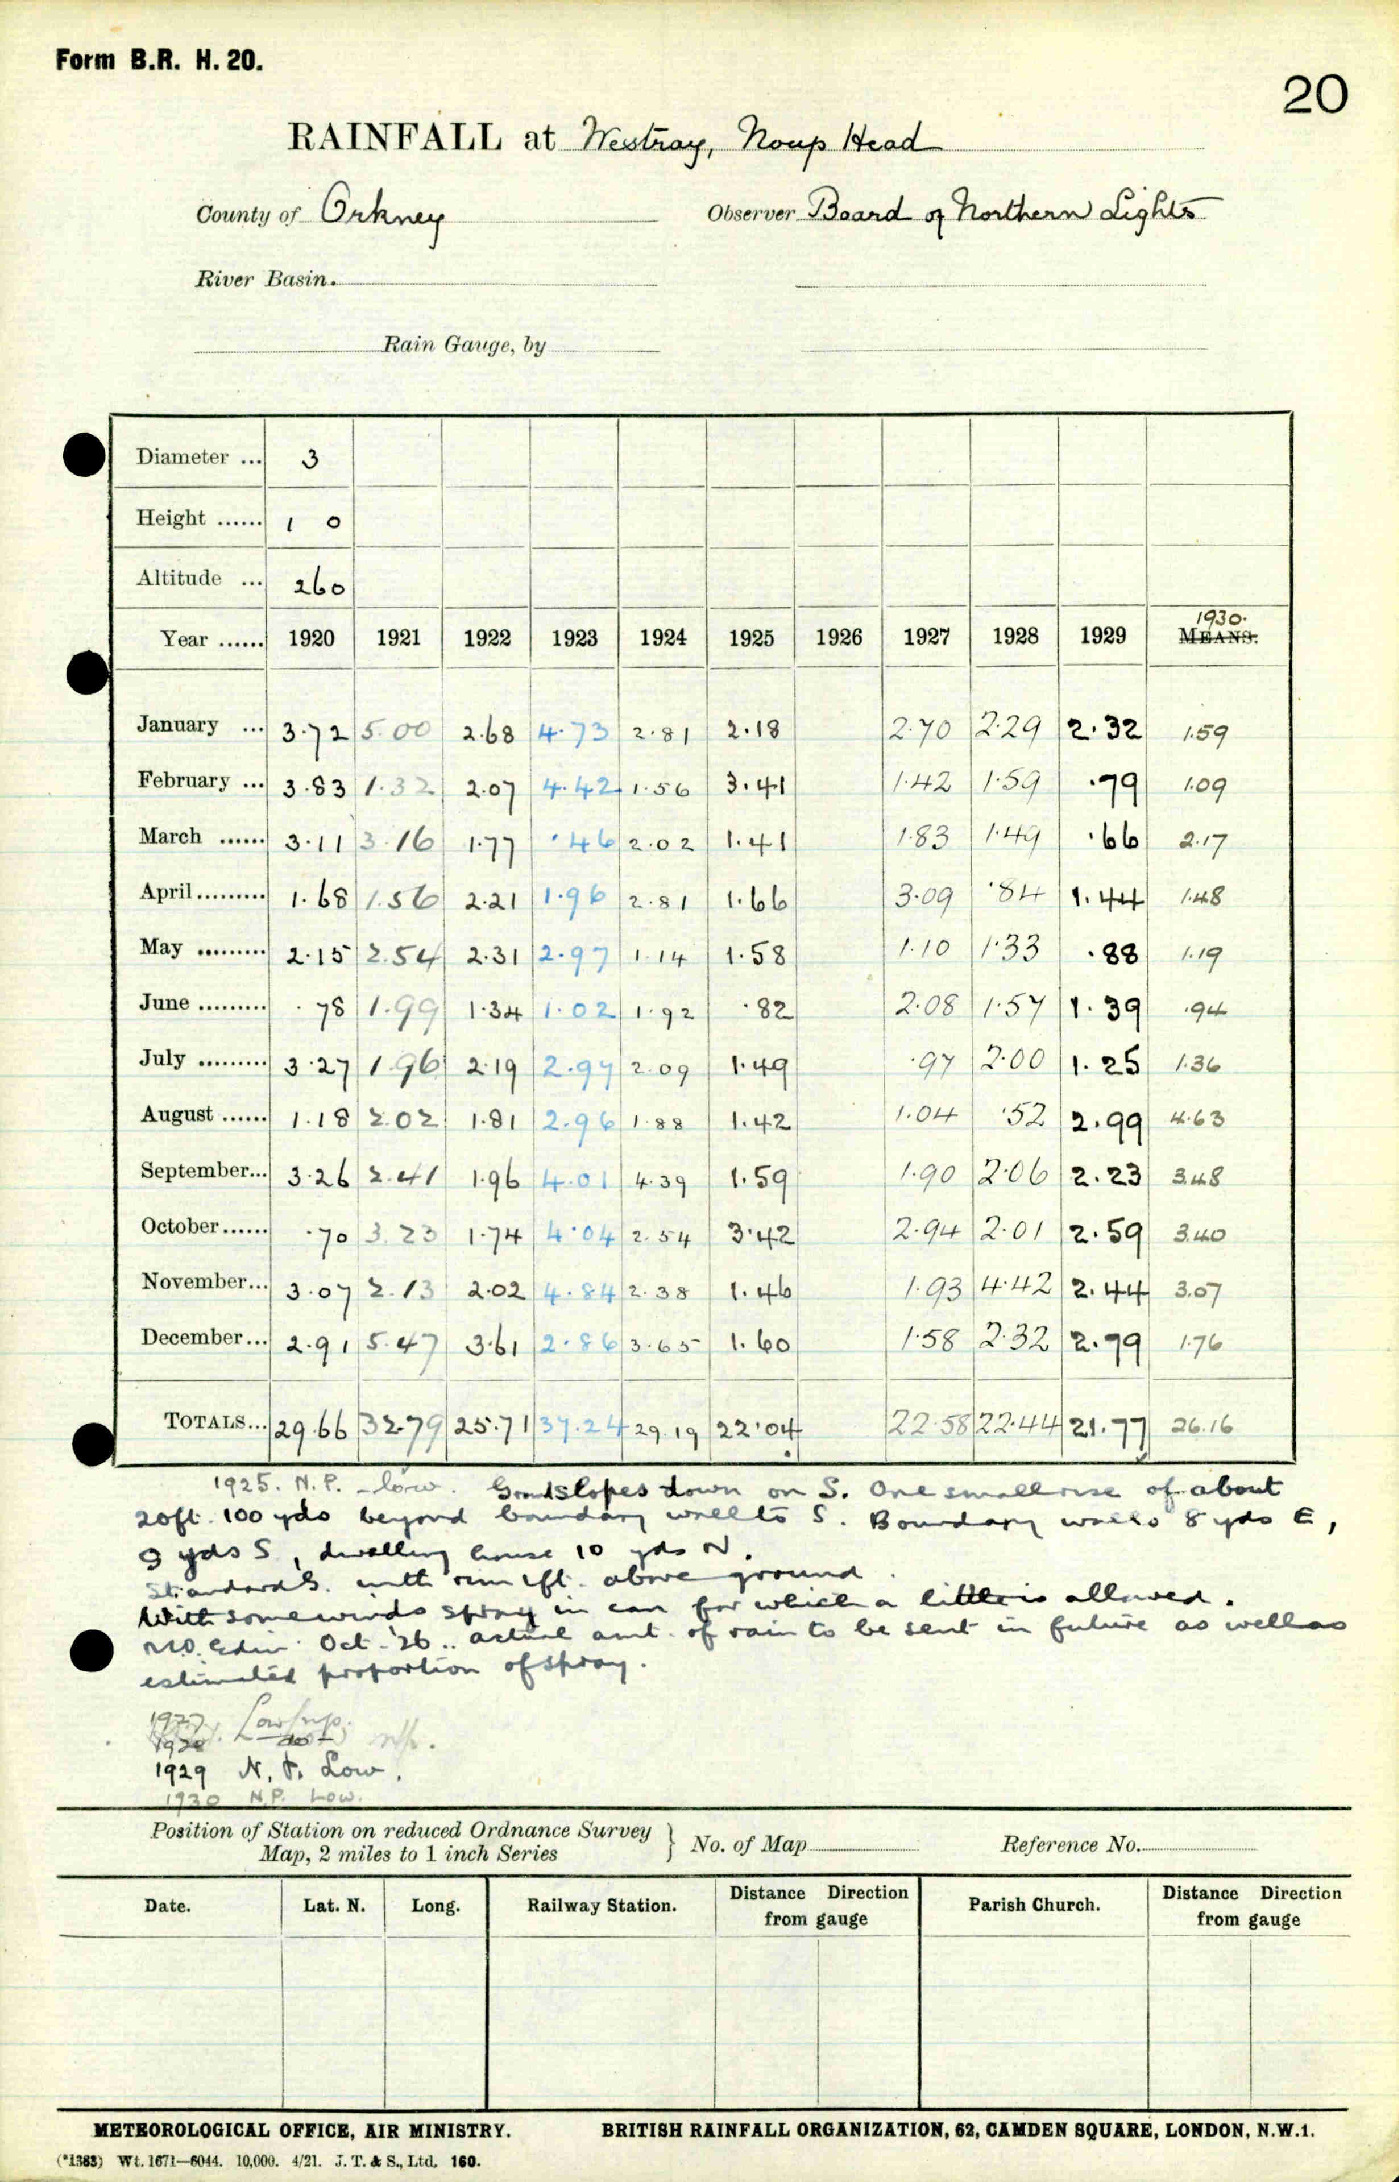 Form B.R. H. 20.
20
RAINFALL at Westray, Noup Head
County of Orkney Observer Board of Northern Lights
River Basin.
Rain Gauge, by
Diameter ... 3
Height ...... 1 0
Altitude ... 260
1930.
Year ...... 1920 1921 1922 1923 1924 1925 1926 1927 1928 1929 MEANS.
January ... 3.72 5.00 2.68 4.73 2.81 2.18 2.70 2.29 2.32 1.59
February ... 3.83 1.32 2.07 4.42 1.56 3.41 1.42 1.59 .79 1.09
March ...... 3.11 3.16 1.77 .46 2.02 1.41 1.83 1.49 .66 2.17
April......... 1.68 1.56 2.21 1.96 2.81 1.66 3.09 .84 1.44 1.48
May ......... 2.15 2.54 2.31 2.97 1.14 1.58 1.10 1.33 .88 1.19
June ......... .78 1.99 1.34 1.02 1.92 .82 2.08 1.57 1.39 .94
July ......... 3.27 1.96 2.19 2.97 2.09 1.49 .97 2.00 1.25 1.36
August ...... 1.18 2.02 1.81 2.96 1.88 1.42 1.04 .52 2.99 4.63
September... 3.26 2.41 1.96 4.01 4.39 1.59 1.90 2.06 2.23 3.48
October...... .70 3.23 1.74 4.04 2.54 3.42 2.94 2.01 2.59 3.40
November... 3.07 2.13 2.02 4.84 2.38 1.46 1.93 4.42 2.44 3.07
December... 2.91 5.47 3.61 2.86 3.65 1.60 1.58 2.32 2.79 1.76
TOTALS... 29.66 32.79 25.71 37.24 29.19 22.04 22.58 22.44 21.77 26.16
1925. N.P. - low. Grnd slopes down on S. One small rise of about
20ft. 100 yds beyond boundary wall to S. Boundary walls 8 yds E,
9 yds S, dwelling house 10 yds N.
Standard S. with rim 1ft. above ground.
With some winds spray in can for which a little is allowed.
M.O. Edin. Oct. '26.. actual amt. of rain to be sent in future as well as
estimated proportion of spray.
1927 Low n/p.
1928 do n/p.
1929 N.P. Low.
1930 N.P. Low.
Position of Station on reduced Ordnance Survey
Map, 2 miles to 1 inch Series } No. of Map Reference No.
Date. Lat. N. Long. Railway Station. Distance Direction from gauge Parish Church. Distance Direction from gauge
METEOROLOGICAL OFFICE, AIR MINISTRY. BRITISH RAINFALL ORGANIZATION, 62, CAMDEN SQUARE, LONDON, N.W.1.
(*1383) Wt. 1671—6044. 10,000. 4/21. J. T. & S., Ltd. 160.